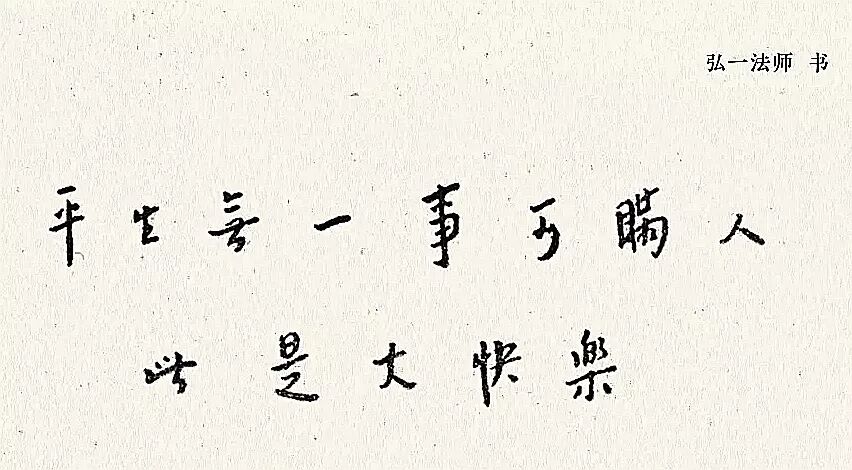 弘一法师 书
平生無一事可瞞人
此是大快樂